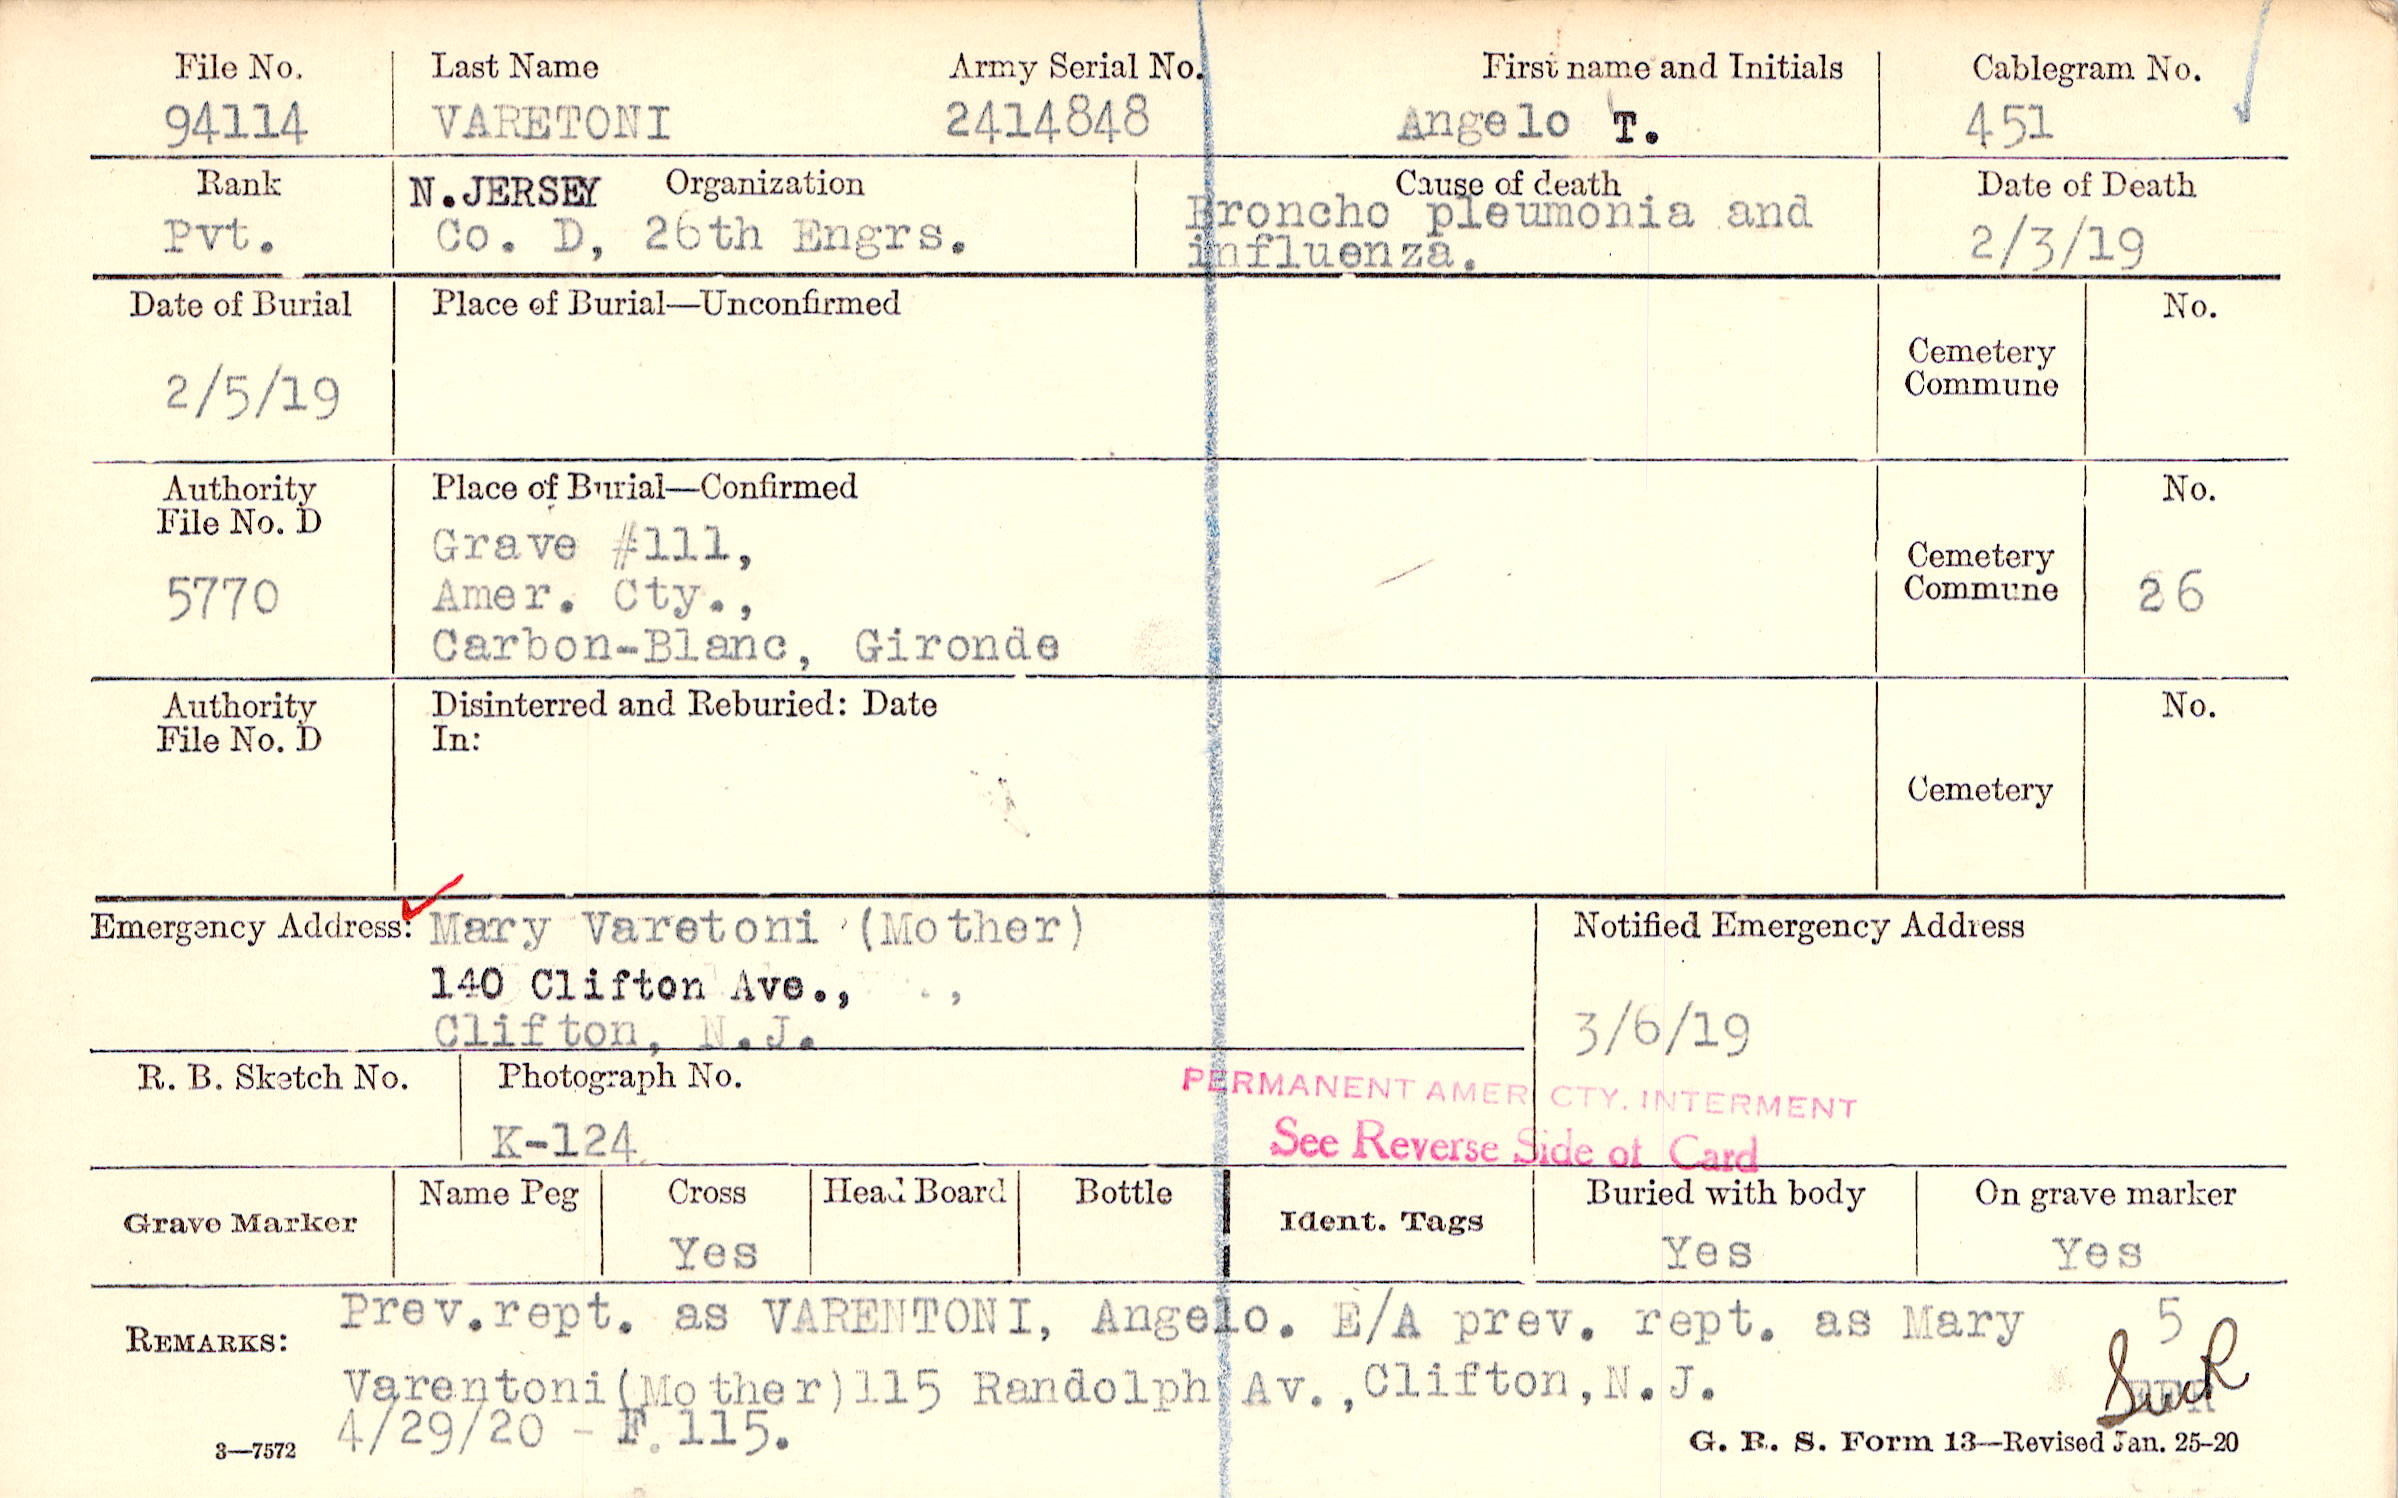 File No. Last Name Army Serial No. First name and Initials Cablegram No.
94114 VARETONI 2414848 Angelo T. 451
Rank N.JERSEY Organization Cause of death Date of Death
Pvt. Co. D, 26th Engrs. Broncho pleumonia and
influenza. 2/3/19
Date of Burial Place of Burial—Unconfirmed No.
Cemetery
Commune
2/5/19
Authority Place of Burial—Confirmed No.
File No. D
Grave #111,
Cemetery
5770 Amer. Cty., Commune 26
Carbon-Blanc, Gironde
Authority Disinterred and Reburied: Date No.
File No. D In:
Cemetery
Emergency Address: Mary Varetoni (Mother) Notified Emergency Address
140 Clifton Ave.,
Clifton, N.J. 3/6/19
R. B. Sketch No. Photograph No. PERMANENT AMER CTY. INTERMENT
K-124 See Reverse Side of Card
Name Peg Cross Head Board Bottle Buried with body On grave marker
Grave Marker Ident. Tags
Yes Yes Yes
Prev.rept. as VARENTONI, Angelo. E/A prev. rept. as Mary 5
REMARKS:
Varentoni(Mother)115 Randolph Av.,Clifton,N.J.
4/29/20 - F.115.
3—7572 G. R. S. Form 13—Revised Jan. 25-20